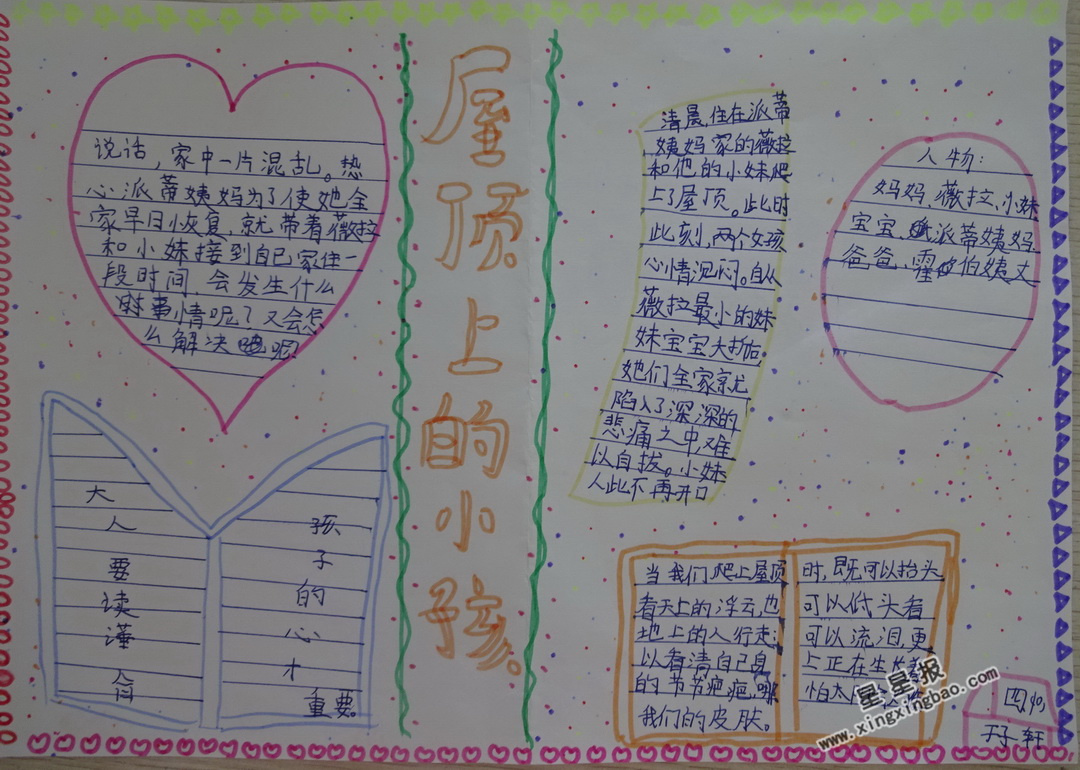 屋顶上的小孩
说话，家中一片混乱。热
心派蒂姨妈为了使她全
家早日恢复，就带着薇拉
和小妹接到自己家住一
段时间，会发生什么
事情呢？又会怎
么解决呢？
清晨，住在派蒂
姨妈家的薇拉
和他的小妹爬
上了屋顶。此时
此刻，两个女孩
心情沉闷。自从
薇拉最小的妹
妹宝宝大折后，
她们全家就
陷入了深深的
悲痛之中，难
以自拔。小妹
人此不再开口
人物：
妈妈、薇拉、小妹
宝宝、派蒂姨妈
爸爸、霍伯姨丈
大人要读懂
孩子的心才
重要。
当我们爬上屋顶
看天上的浮云，也
地上的人行走；
以看清自己身
的节节疤疤，哪
我们的皮肤。
时，既可以抬头
可以低头看
可以流泪，更
上正在生长着
怕太
四(4)
星星报
www.xingxingbao.com